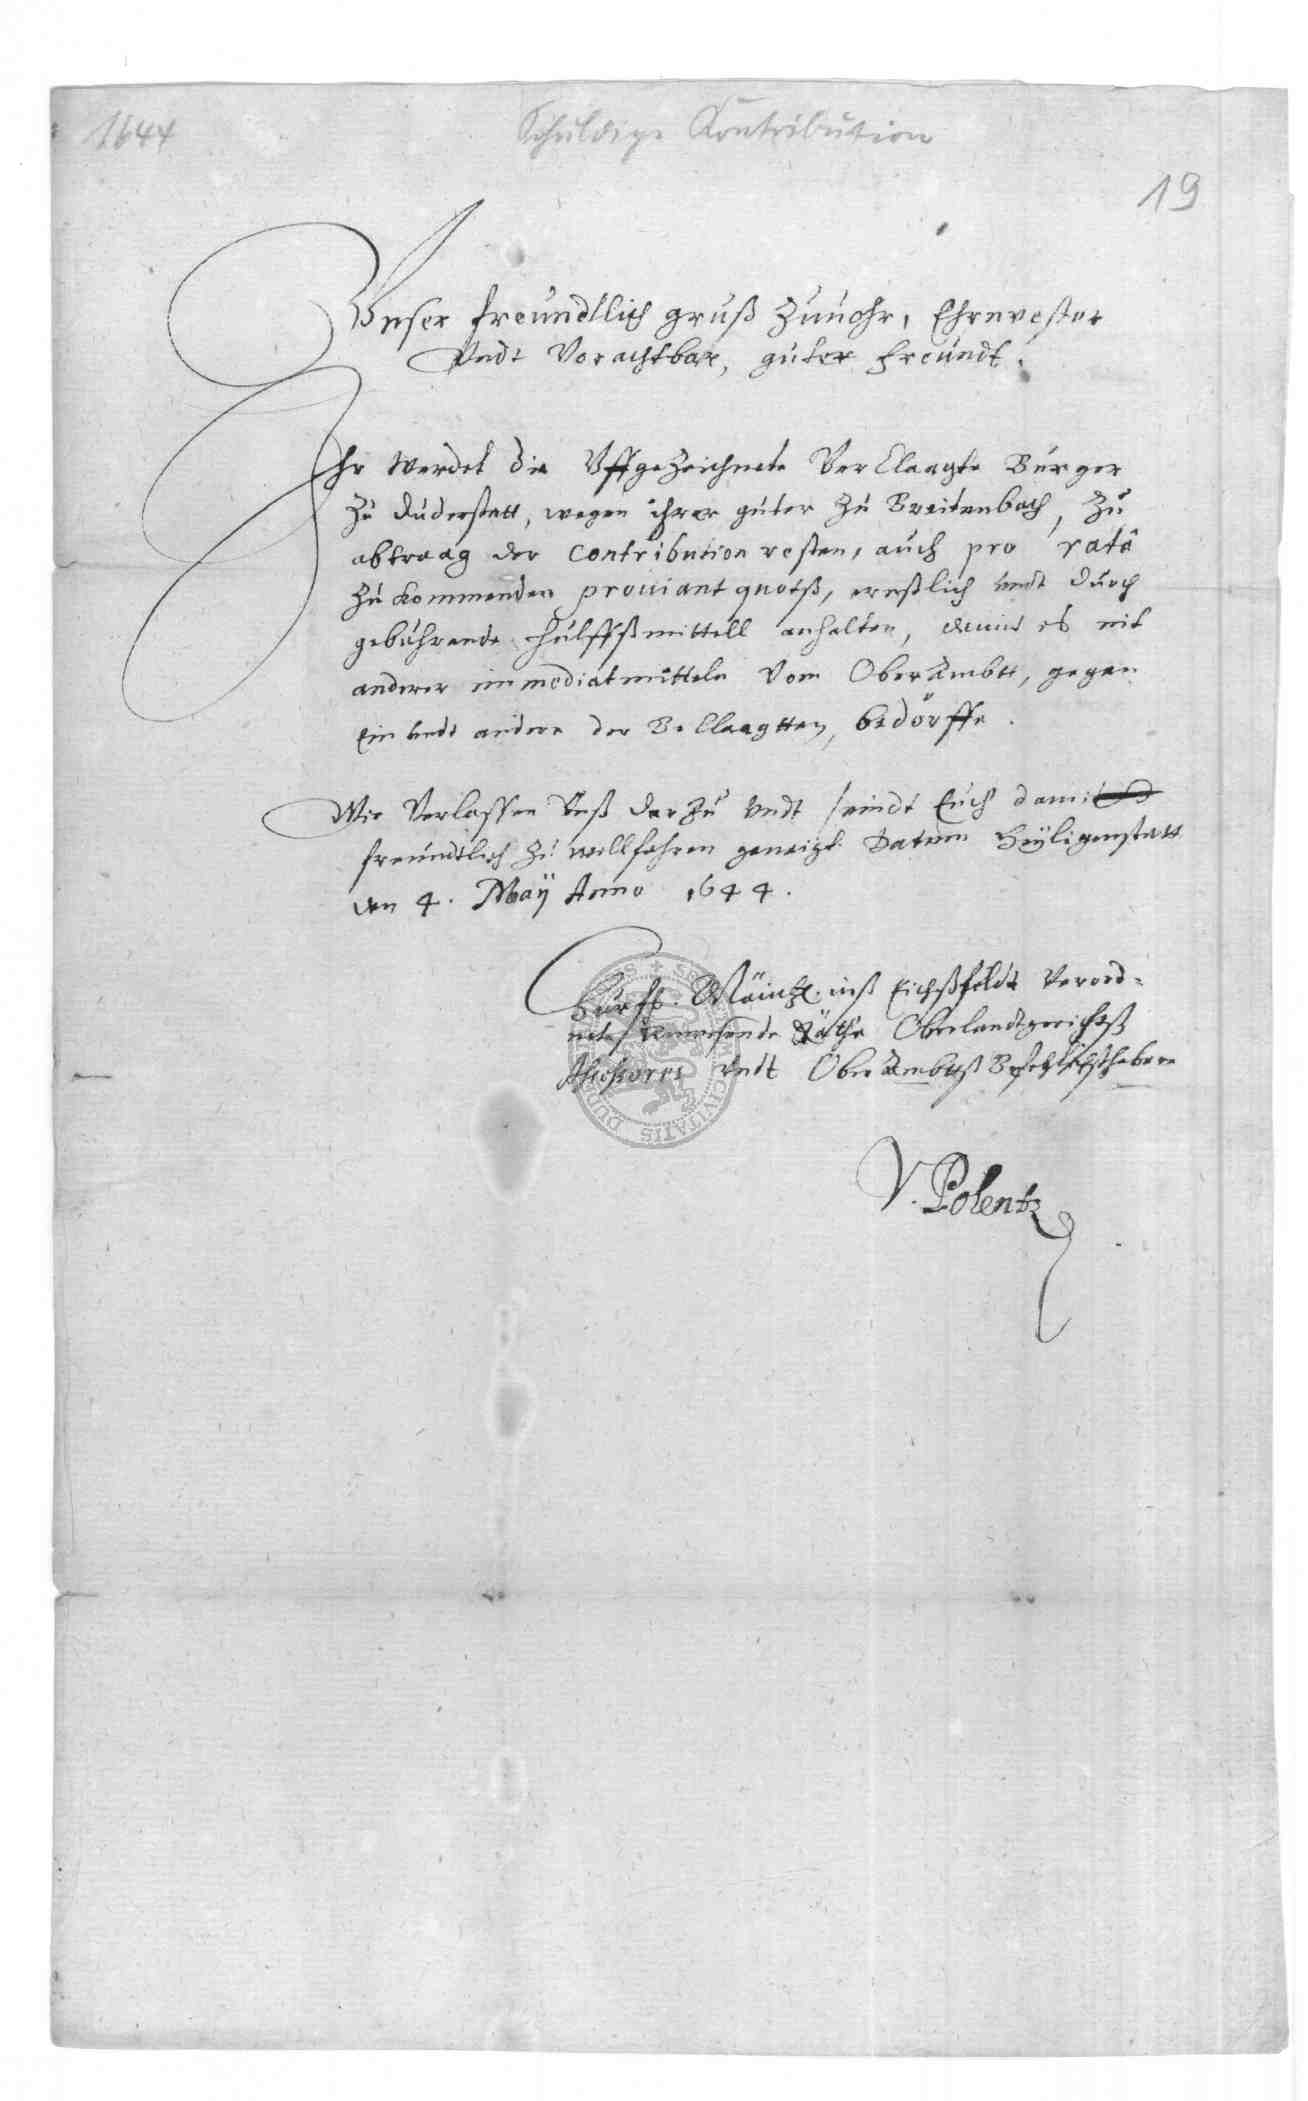 1644
Schuldige Kontribution
19
Vnser freundtlich gruß Zuuohr, Ehrnvester
Vndt Vorachtbar, guter freundt.
Ihr werdet die Vffgezeichnete Verclaagte Burger
zu Duderstatt, wegen ihrer guter zu Breitenbach, zu
abtraag der Contribution resten, auch pro ratâ
zu kommenden prouiant quotß, ernßlich vndt durch
gebuhrende hulffßmittell anhalten, damit es nit
anderer immediatmitteln vom Oberambtt, gegen
ein vndt andere der Beclaagtten, bedörffe.
Wir Verlassen Vnß darzu vndt seindt Euch damit
freundtlich zu willfahren geneigt. Datum Heyligenstatt
den 4. Maÿ Anno 1644.
Churft. Mäintz. inß Eichßfeldt Verord-
nete Anwesende Räthe Oberlandtgerichtß
Assessores vndt Ober Ambttß Befehlichshabere
V. Polentz